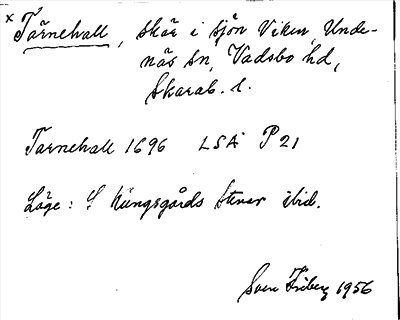 x Tärnehall, skär i sjön Viken, Unde-
näs sn, Vadsbo hd,
Skarab. l.
Tarnehall 1696 LSA P 21
Läge: S Kungsgårds stenar ibid.
Sven Friberg 1956